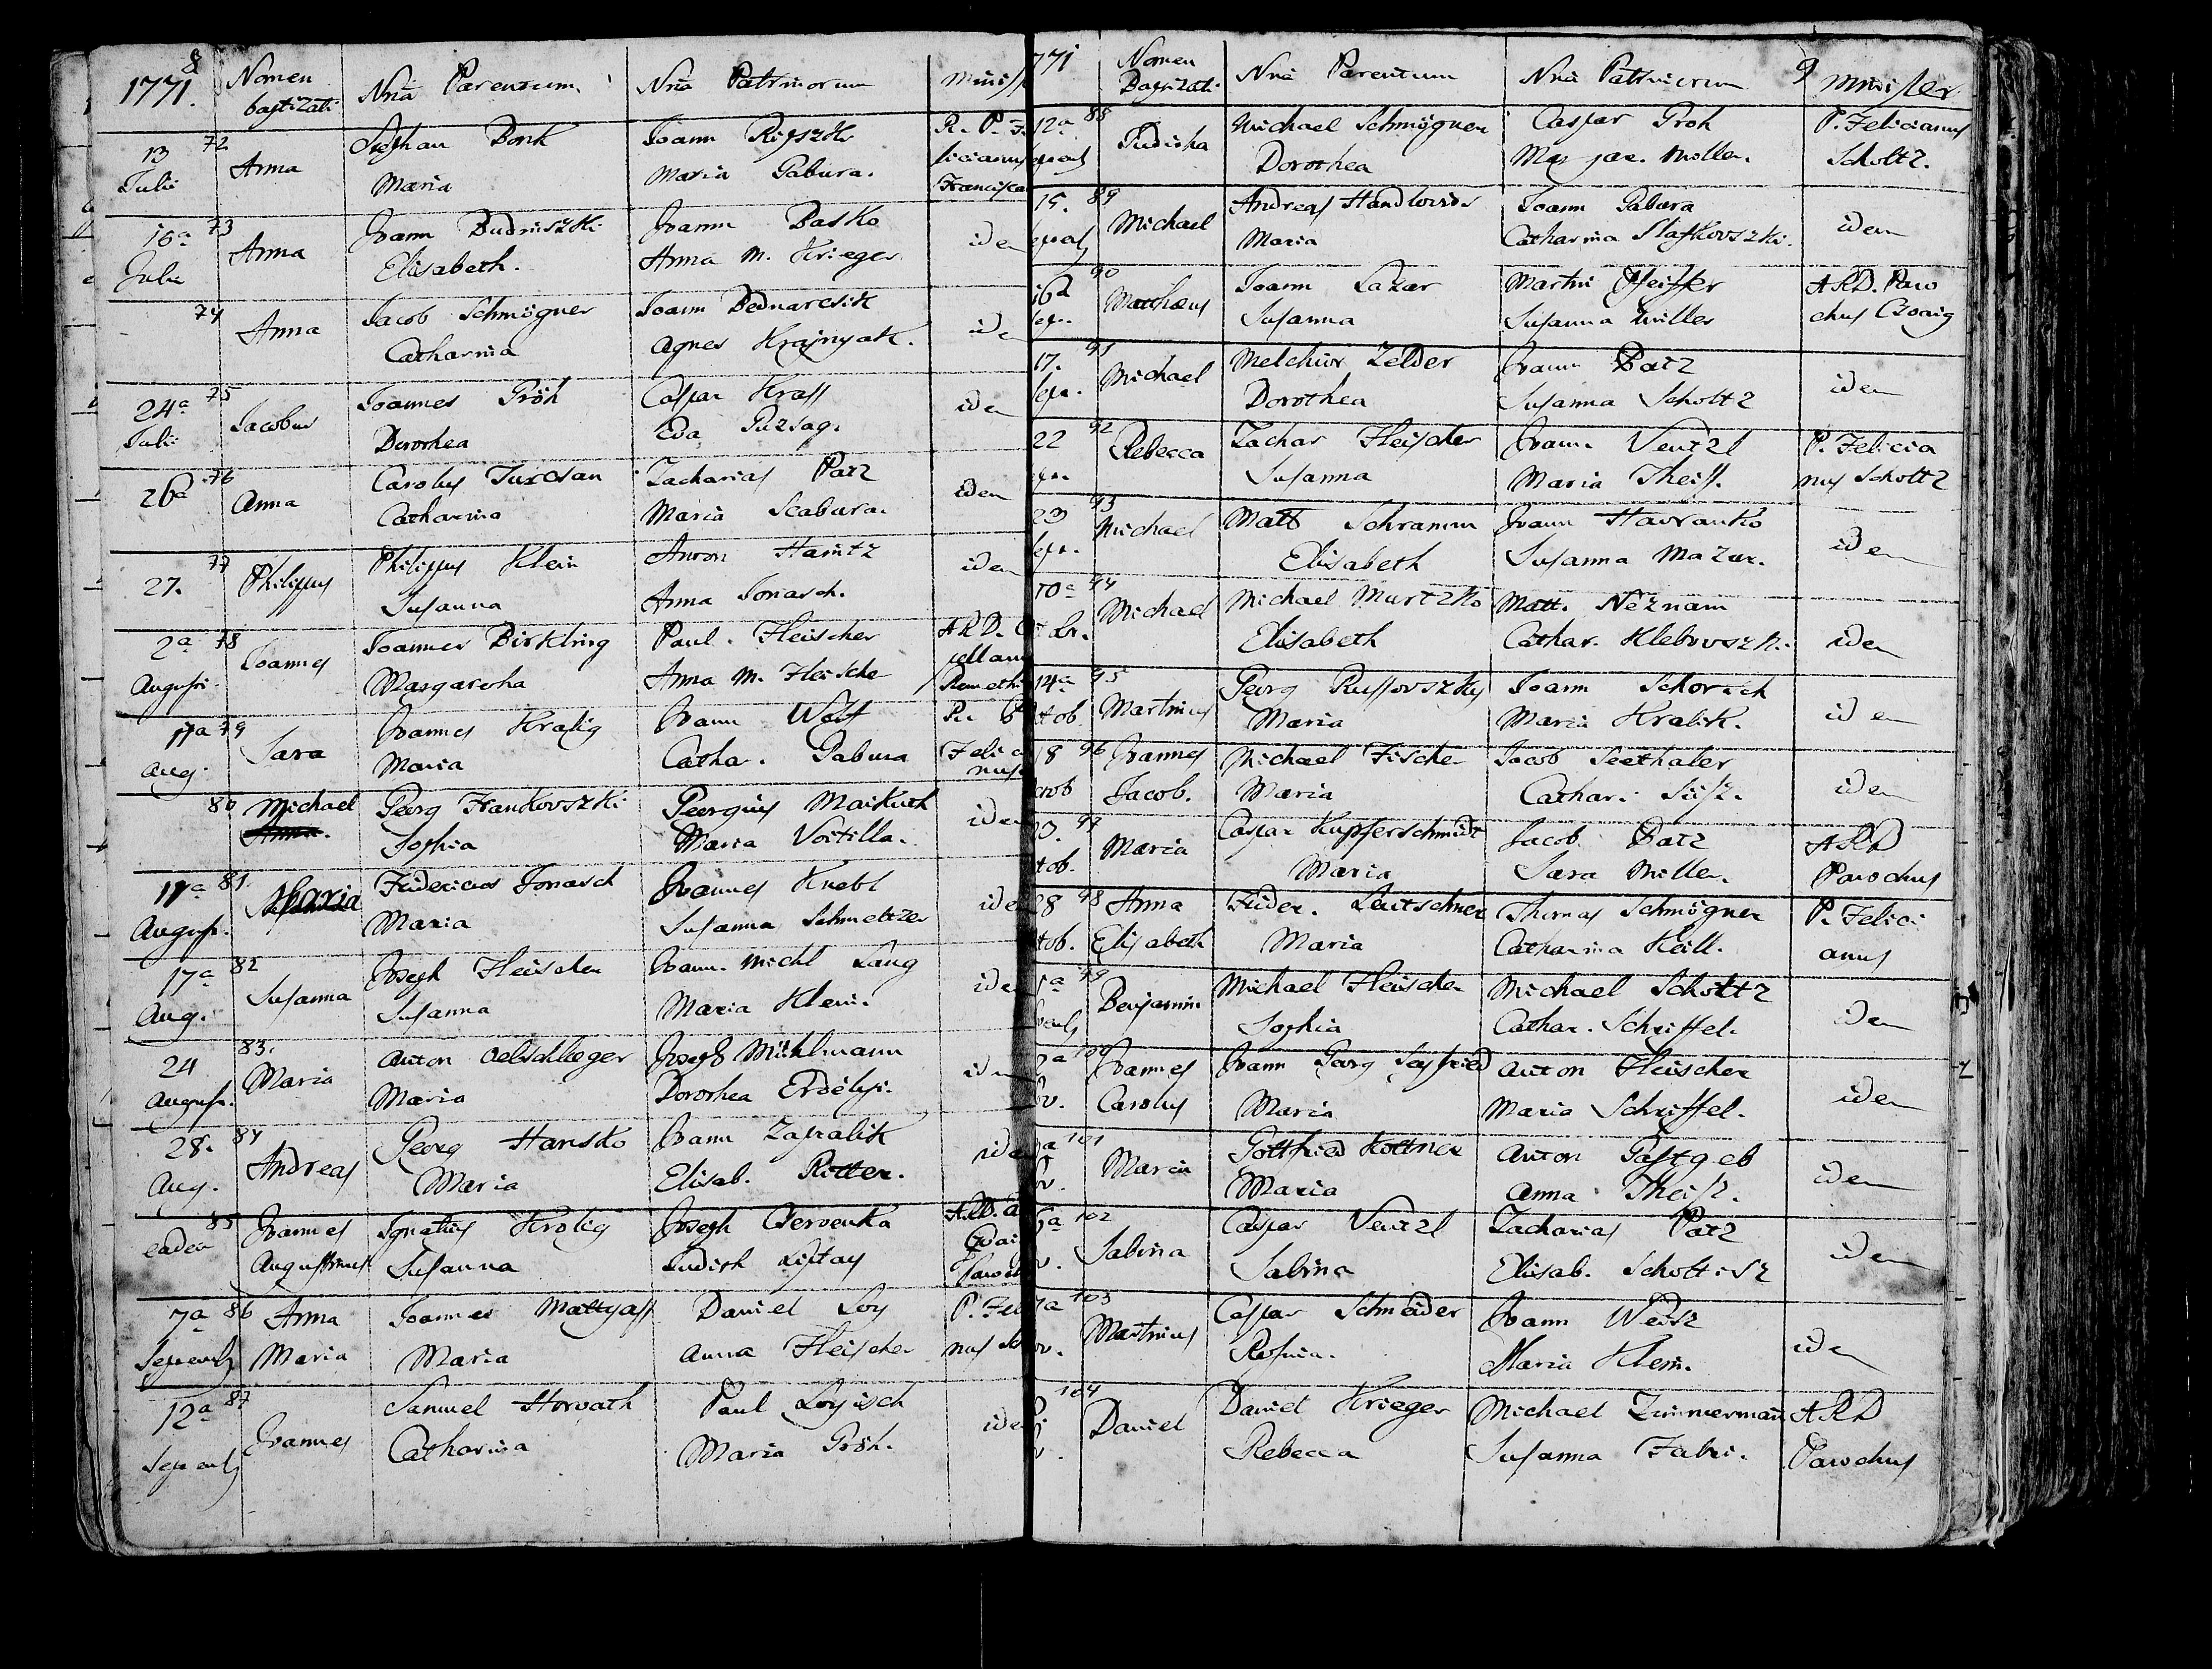 8
1771. Nomen baptizati Nnā Parentum Nnā Patrinorum
13 Julii 72 Anna Stephan Maria Joann Maria Gabura. R. P. Franciscan
16a Julii 73 Anna Joann Budniszki Elisabeth. Joann Basko Anna M. Krieger iden
74 Anna Jacob Schmögner Catharina Joann Bednarcsik Agnes Krajnyak. iden
24a Julii 75 Jacobus Joannes Gröh Dorothea Caspar Krass Eva iden
26a 76 Anna Carolus Turcsan Catharina Zacharias Patz Maria Scabura. iden
27. 77 Philippus Philippus Klein Susanna Anton Hanitz Anna Jonasch. iden
2a Augusti. 78 Joannes Joannes Birkling Margaretha Paul. Fleischer Anna M. Fleischer A R D.
17a Aug. 79 Sara Joannes Kralig Maria Joann Wolf Catha. Gabura
80 Michael Georg Frankovszki Sophia Georgius Maikuth Maria Voitilla. iden
11a August. 81. Maria Fridericus Jonasch Maria Joannes Knebl Susanna Schmeltzer iden
17a Aug. 82 Susanna Joseph Fleischer Susanna Joann. Michl Lang Maria Klein. iden
24 August. 83. Maria Anton Oelschlæger Maria Joseph Mühlmann Dorothea Erdélyi. iden
28. Aug. 84 Andreas Georg Hansko Maria Joann Zapralik Elisab. Rotter. iden
eaden 85 Joannes Augustinus Ignatius Krolig Susanna Joseph Cservenka Judith Liptay
7a Septemb 86 Anna Maria Joannes Mattyass Maria Daniel Loy Anna Fleischer
12a Septemb 87 Joannes Samuel Horvath Catharina Paul Loyisch Maria Gröh. iden
9
771 Nomen Baptizati Nnā Parentum Nnā Patrinorum Minister
12a 88 Juditha Michael Schmögner Dorothea Caspar Groh Miller. P. Felicianus Scholtz.
15. 89 Michael Andreas Maria Joann Gabura Catharina Slafkovszki. idem
16a 90 Matthæus Joann Lazar Susanna Martin Pfeiffer Susanna Miller A R D. Parochus Czoaig
17. 91 Michael Melchior Zelder Dorothea Joann Patz Susanna Scholtz iden
22 92 Rebecca Zachar Fleischer Susanna Joann. Ventzl Maria Theiss. P. Felicianus Scholtz
23 93 Michael Matt Schramm Elisabeth Joann Havranko Susanna Mazur. idem
10a 94 Michael Michael Murtzko Elisabeth Matt. Néznam Cathar. Klebovszki. iden
14a 95 Martinus Georg Russovszky Maria Joann Schorsch Maria Kralik. iden
18 96 Joannes Jacob. Michael Fischer Maria Jacob Seethaler Cathar. Süsz. iden
97 Maria Caspar Kupferschmidt Maria Jacob Patz Sara Miller. A R D Parochus
28 98 Anna Elisabeth Frider. Leutschner Maria Thomas Schmögner Catharina Keill. P. Felicianus
99 Benjamin Michael Fleischer Sophia Michael Scholtz Cathar. Schriffel. iden
100 Joannes Carolus Joann Georg Seyfried Maria Anton Fleischer Maria Schriffel. iden
101 Maria Gottfried Kottner Maria Anton Gastgeb Anna Theisz. iden
102 Sabina Caspar Ventzl Sabina Zacharias Patz Elisab. Scholtisz iden
103 Martinus Caspar Schneider Rosina. Joann Weisz Maria Klein. iden
104 Daniel Daniel Krieger Rebecca Michael Zimmermann Susanna Fabri. A R D Parochus